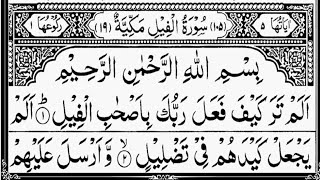 اٰيَاتُهَا ٥ (١٠٥) سُوْرَةُ الْفِيْلِ مَكِّيَّةٌ (١٩) رُكُوْعُهَا ١
بِسْمِ اللّٰهِ الرَّحْمٰنِ الرَّحِيْمِ
اَلَمْ تَرَ كَيْفَ فَعَلَ رَبُّكَ بِاَصْحٰبِ الْفِيْلِ ۝١ اَلَمْ
يَجْعَلْ كَيْدَهُمْ فِيْ تَضْلِيْلٍ ۝٢ وَّاَرْسَلَ عَلَيْهِمْ